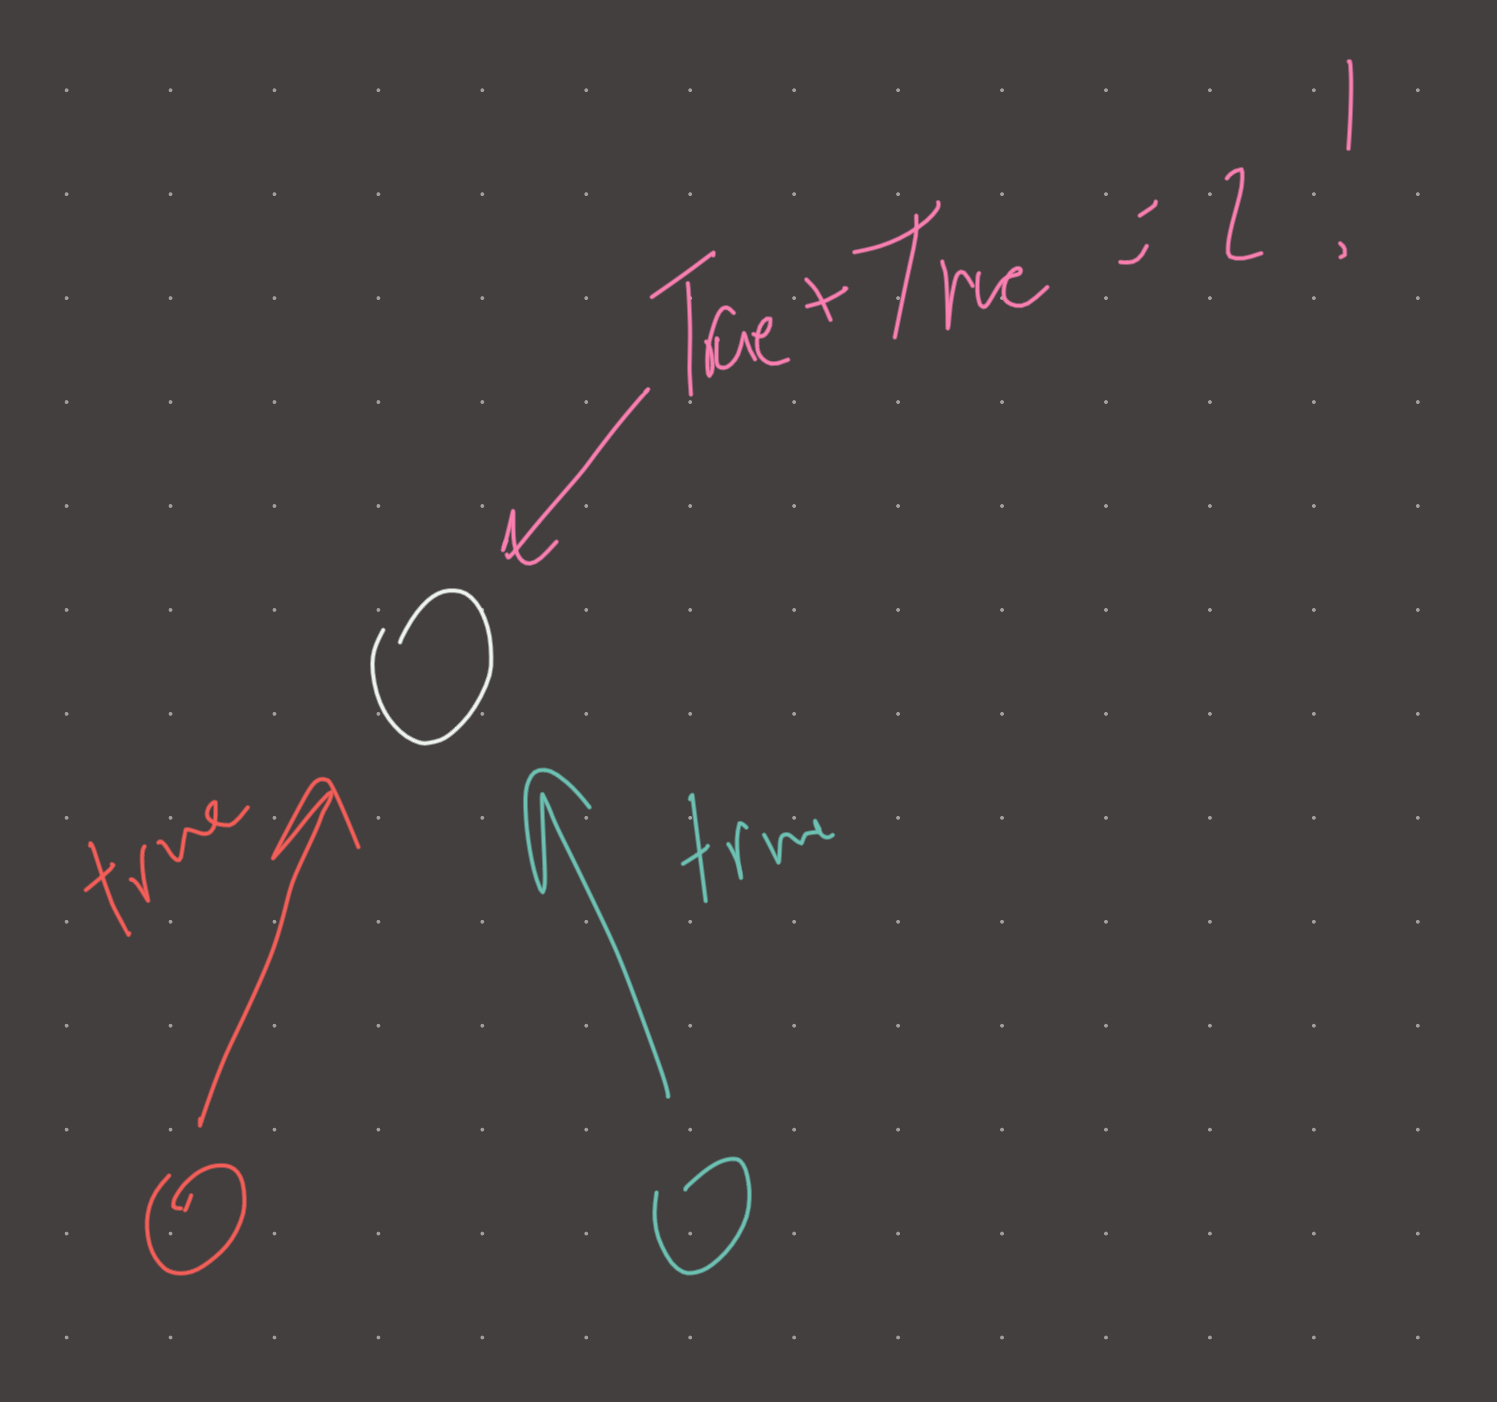 True + True = 2 !
true
true